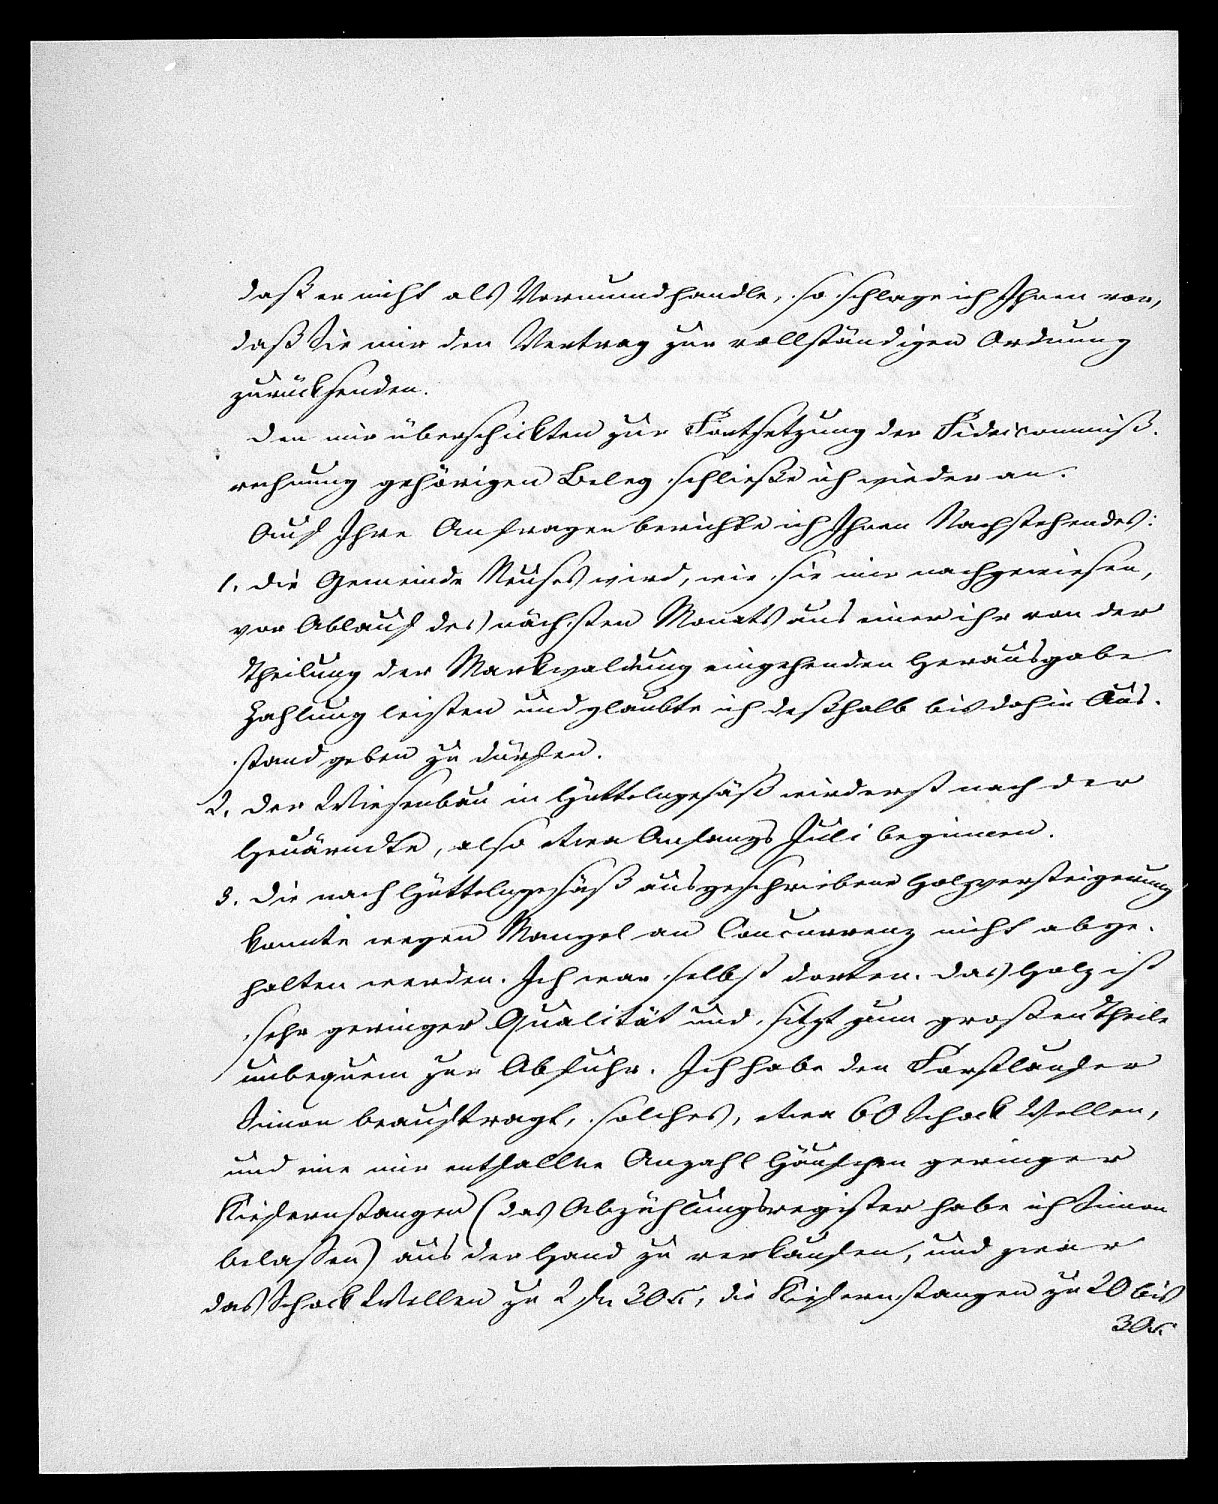 daß er nicht als Vormund handle, so schlage ich Ihnen vor,
daß Sie mir den Vertrag zur vollständigen Ordnung
zurücksenden.
Den mir überschickten zur Fortsetzung der Fideicommiß-
rechnung gehörigen Beleg schließe ich wieder an.
Auf Ihre Anfragen berichte ich Ihnen Nachstehendes:
1. Die Gemeinde Neuses wird, wie sie mir nachgewiesen,
vor Ablauf des nächsten Monats aus einer ihr von der
Theilung der Markwaldung eingehenden Herausgabe
Zahlung leisten und glaubte ich deßhalb bis dahin Aus-
stand geben zu dürfen.
2. Der Wiesenbau in Hüttelngesäß wird erst nach der
Heuärndte, also etwa Anfangs Juli beginnen.
3. Die nach Hüttelngesäß ausgeschriebene Holzversteigerung
konnte wegen Mangel an Concurrenz nicht abge-
halten werden. Ich war selbst dorten. Das Holz ist
sehr geringer Qualität und sitzt zum großen Theile
unbequem zur Abfuhr. Ich habe den Forstlaufer
Simon beauftragt, solches, etwa 60 Schock Wellen,
und eine mir entfallne Anzahl Häufchen geringer
Kiefernstangen (das Abzählungsregister habe ich Simon
belassen) aus der Hand zu verkaufen, und zwar
das Schock Wellen zu 2 fl 30 x, die Kiefernstangen zu 20 bis
30 x.